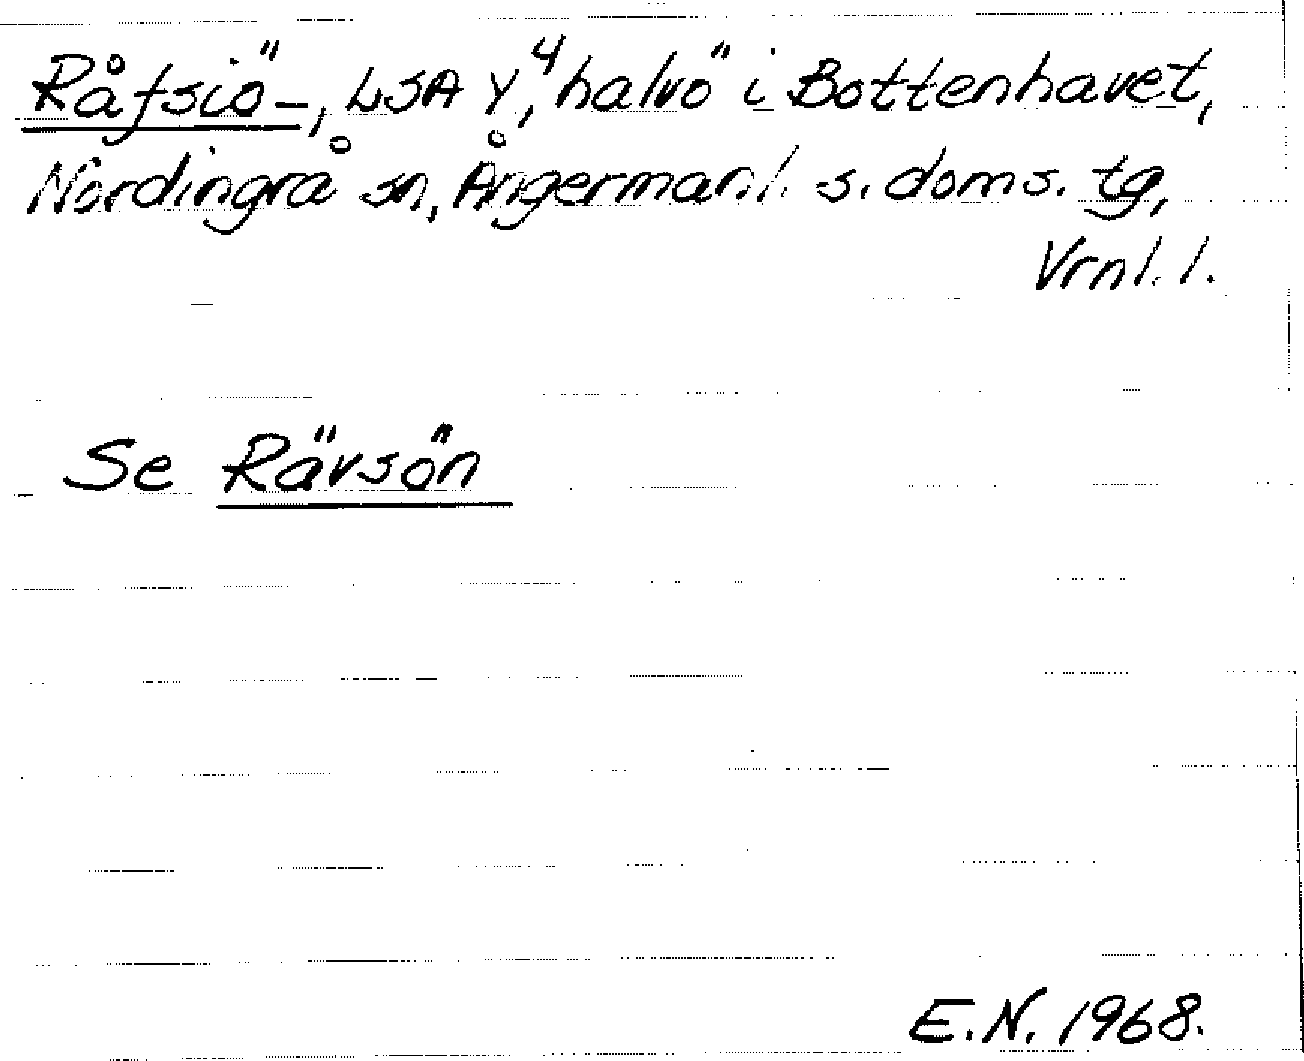 Råfsiö-, LSA Y,4 halvö i Bottenhavet,
Nordingrå sn, Ångermanl. s. doms. tg,
Vrnl. l.
Se Rävsön
E.N. 1968.